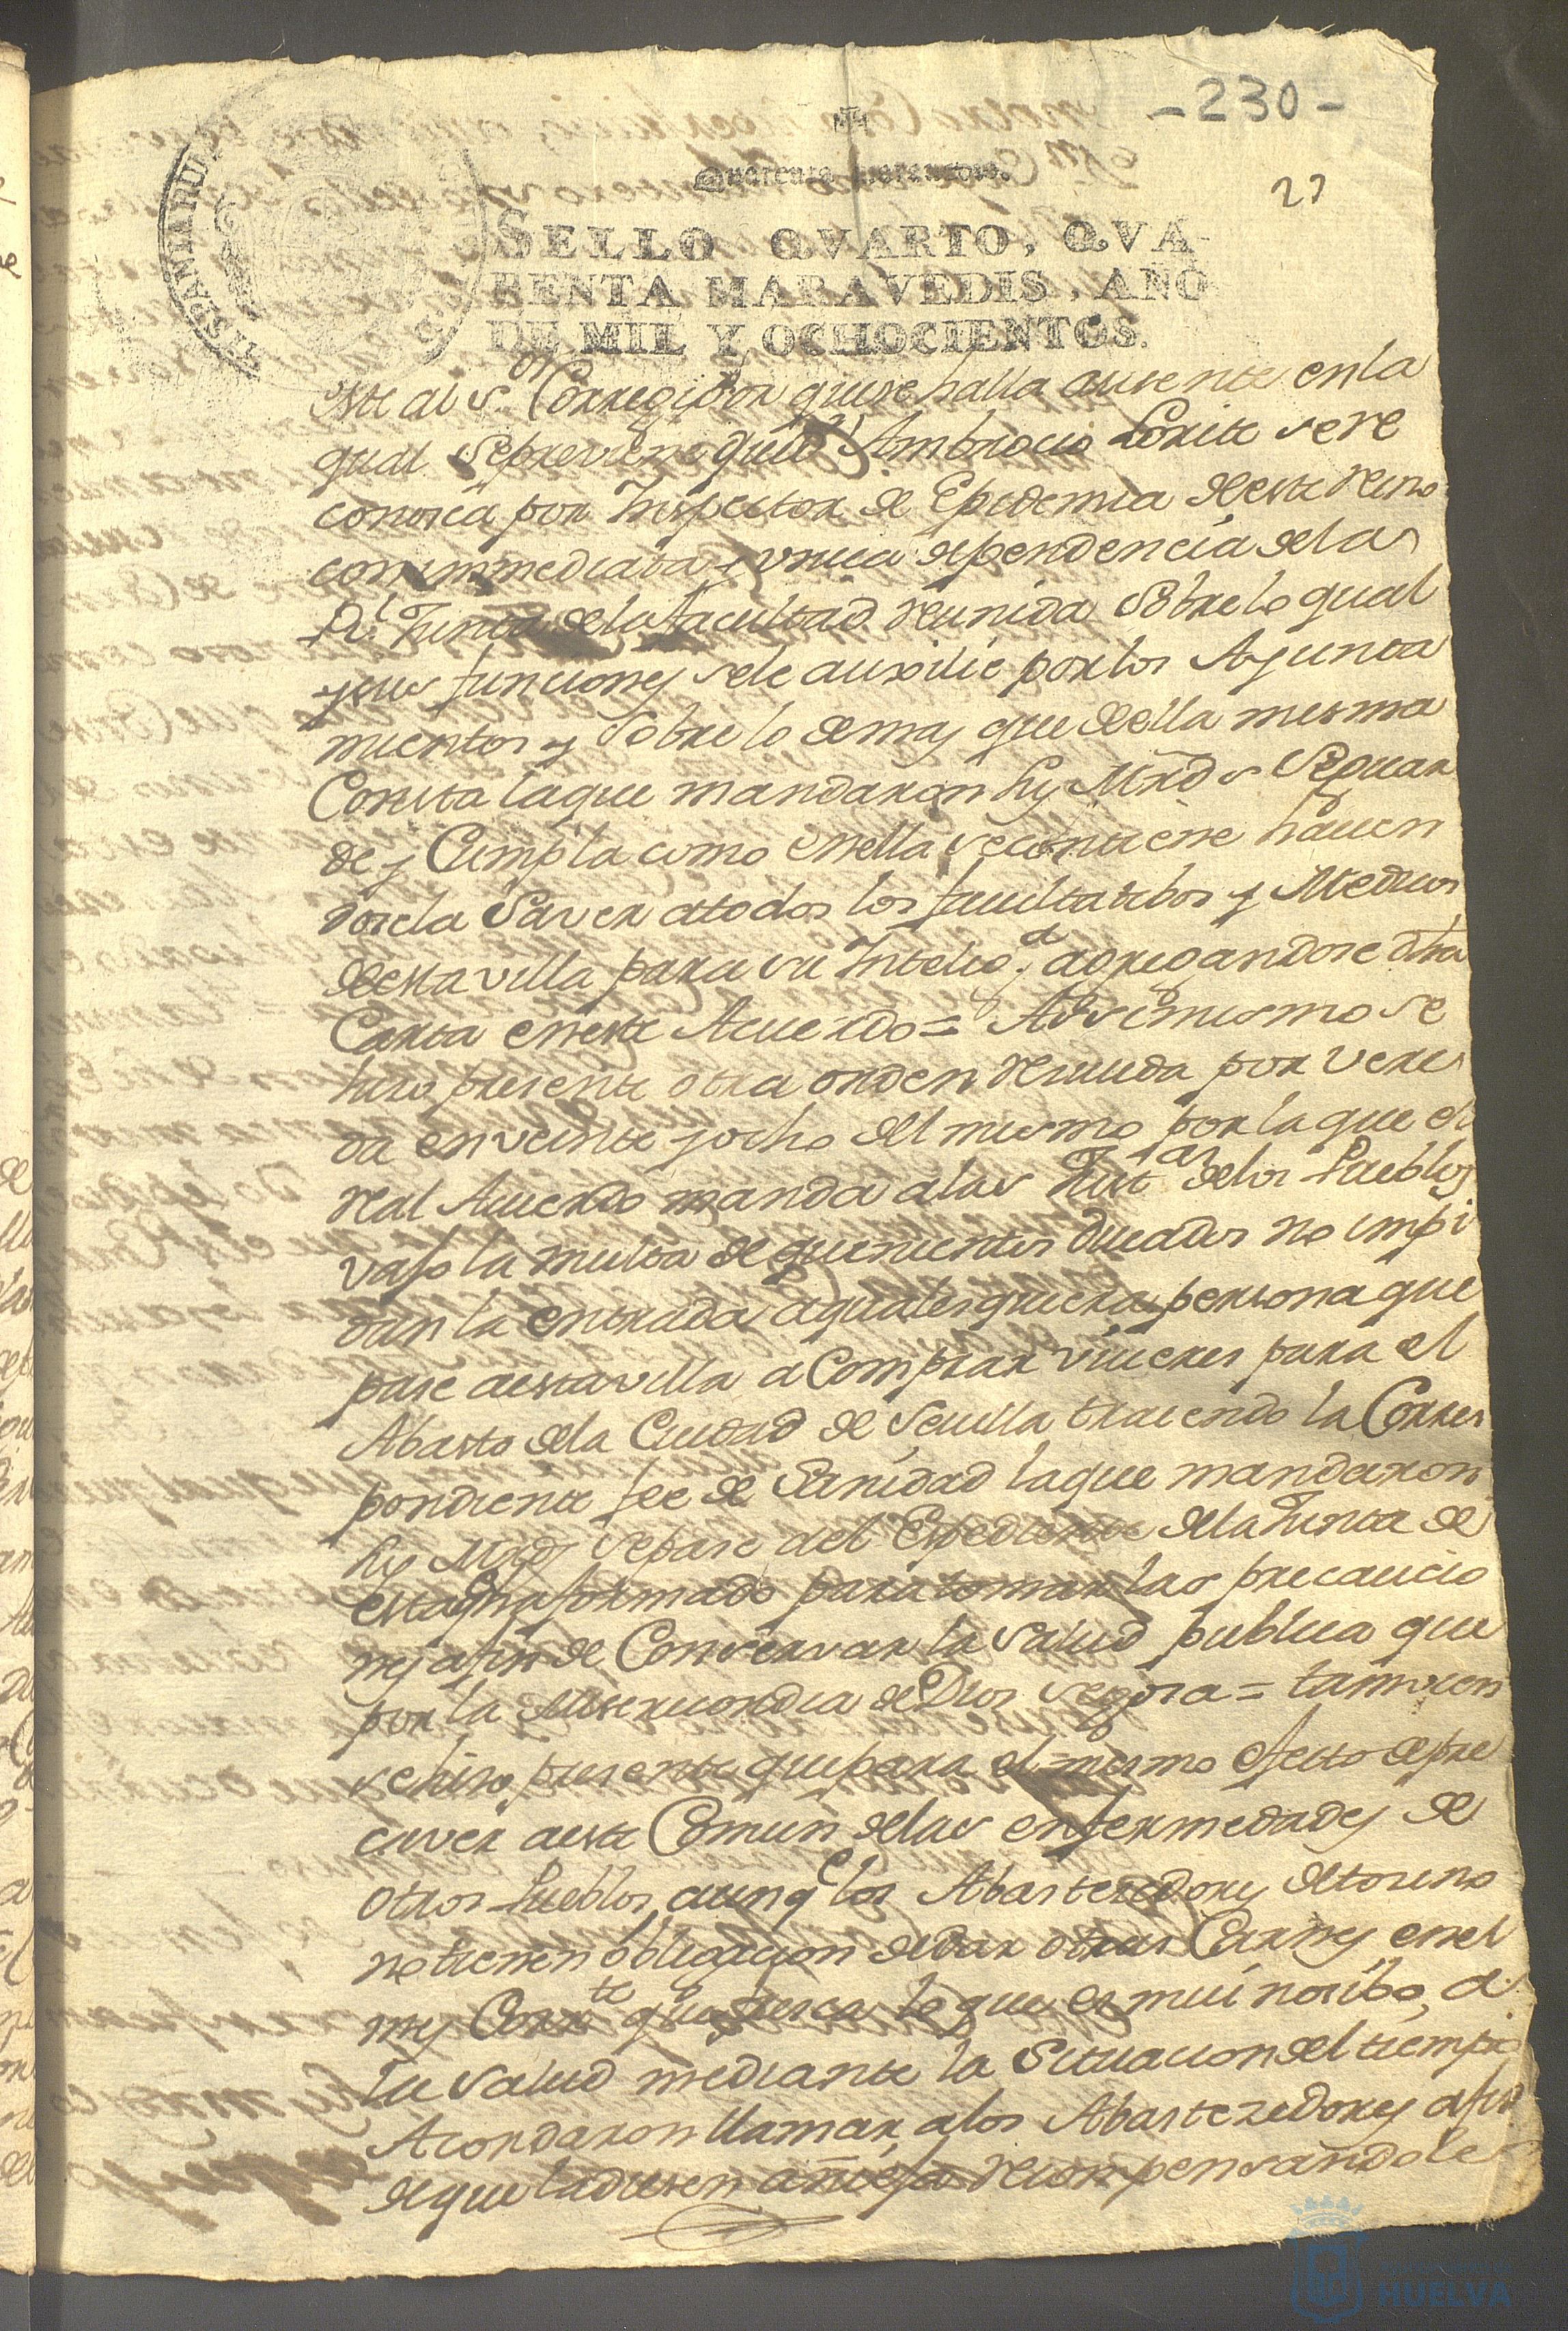 -230-
27
Quarenta maravedis.
SELLO QVARTO, QVA
RENTA MARAVEDIS, AÑO
DE MIL Y OCHOCIENTOS.
HISPANIARU
este al Sor Corregidor quese halla ausente en la
qual se previene que dn Ambrocio Lorite se re
conosca por Inspector de Epidemia de este reino
con immediata y unica dependencia de la
Rl Junta de la Facultad reunida sobre lo qual
y sus funciones sele auxilie por los Ayunta
mientos y sobre lo demas que de ella misma
Consta la que mandaron sus Mrds se guar
de y Cumpla como en ella se contiene havien
dosela saver a todos los facultatibos y Medicos
de esta villa para su Inteligª agregandose dha
Carta en este Acuerdo = Assimismo se
hizo presente otra orden remitida por vere
da en veinte y ocho del mismo por la que el
real Acuerdo manda a las Justas de los Pueblos
vajo la multa de quinientos ducados no impi
dan la entrada a qualesquiera persona que
pase a esta villa a Comprar viveres para el
Abasto de la Ciudad de Sevilla trayendo la Corres
pondiente fee de Sanidad la que mandaron
sus Mrds se pase al Espediente de la Junta de
esta dha formado para tomar las precaucio
nes a fin de Conservar la salud publica que
por la Misericordia de Dios se goza = tamvien
se hizo presente que para el mismo efecto de pre
caver a este Comun de las enfermedades de
otros Pueblos, aunqe los Abastecedores de tosino
no tienen obligacion de dar otras Carnes en el
mes Corrte que fresca lo que es mui nosibo a
la salud mediante la Situacion del tiempo
Acordaron llamar a los Abastezedores a fin
de que la diesen añeja recompensandole
HUELVA